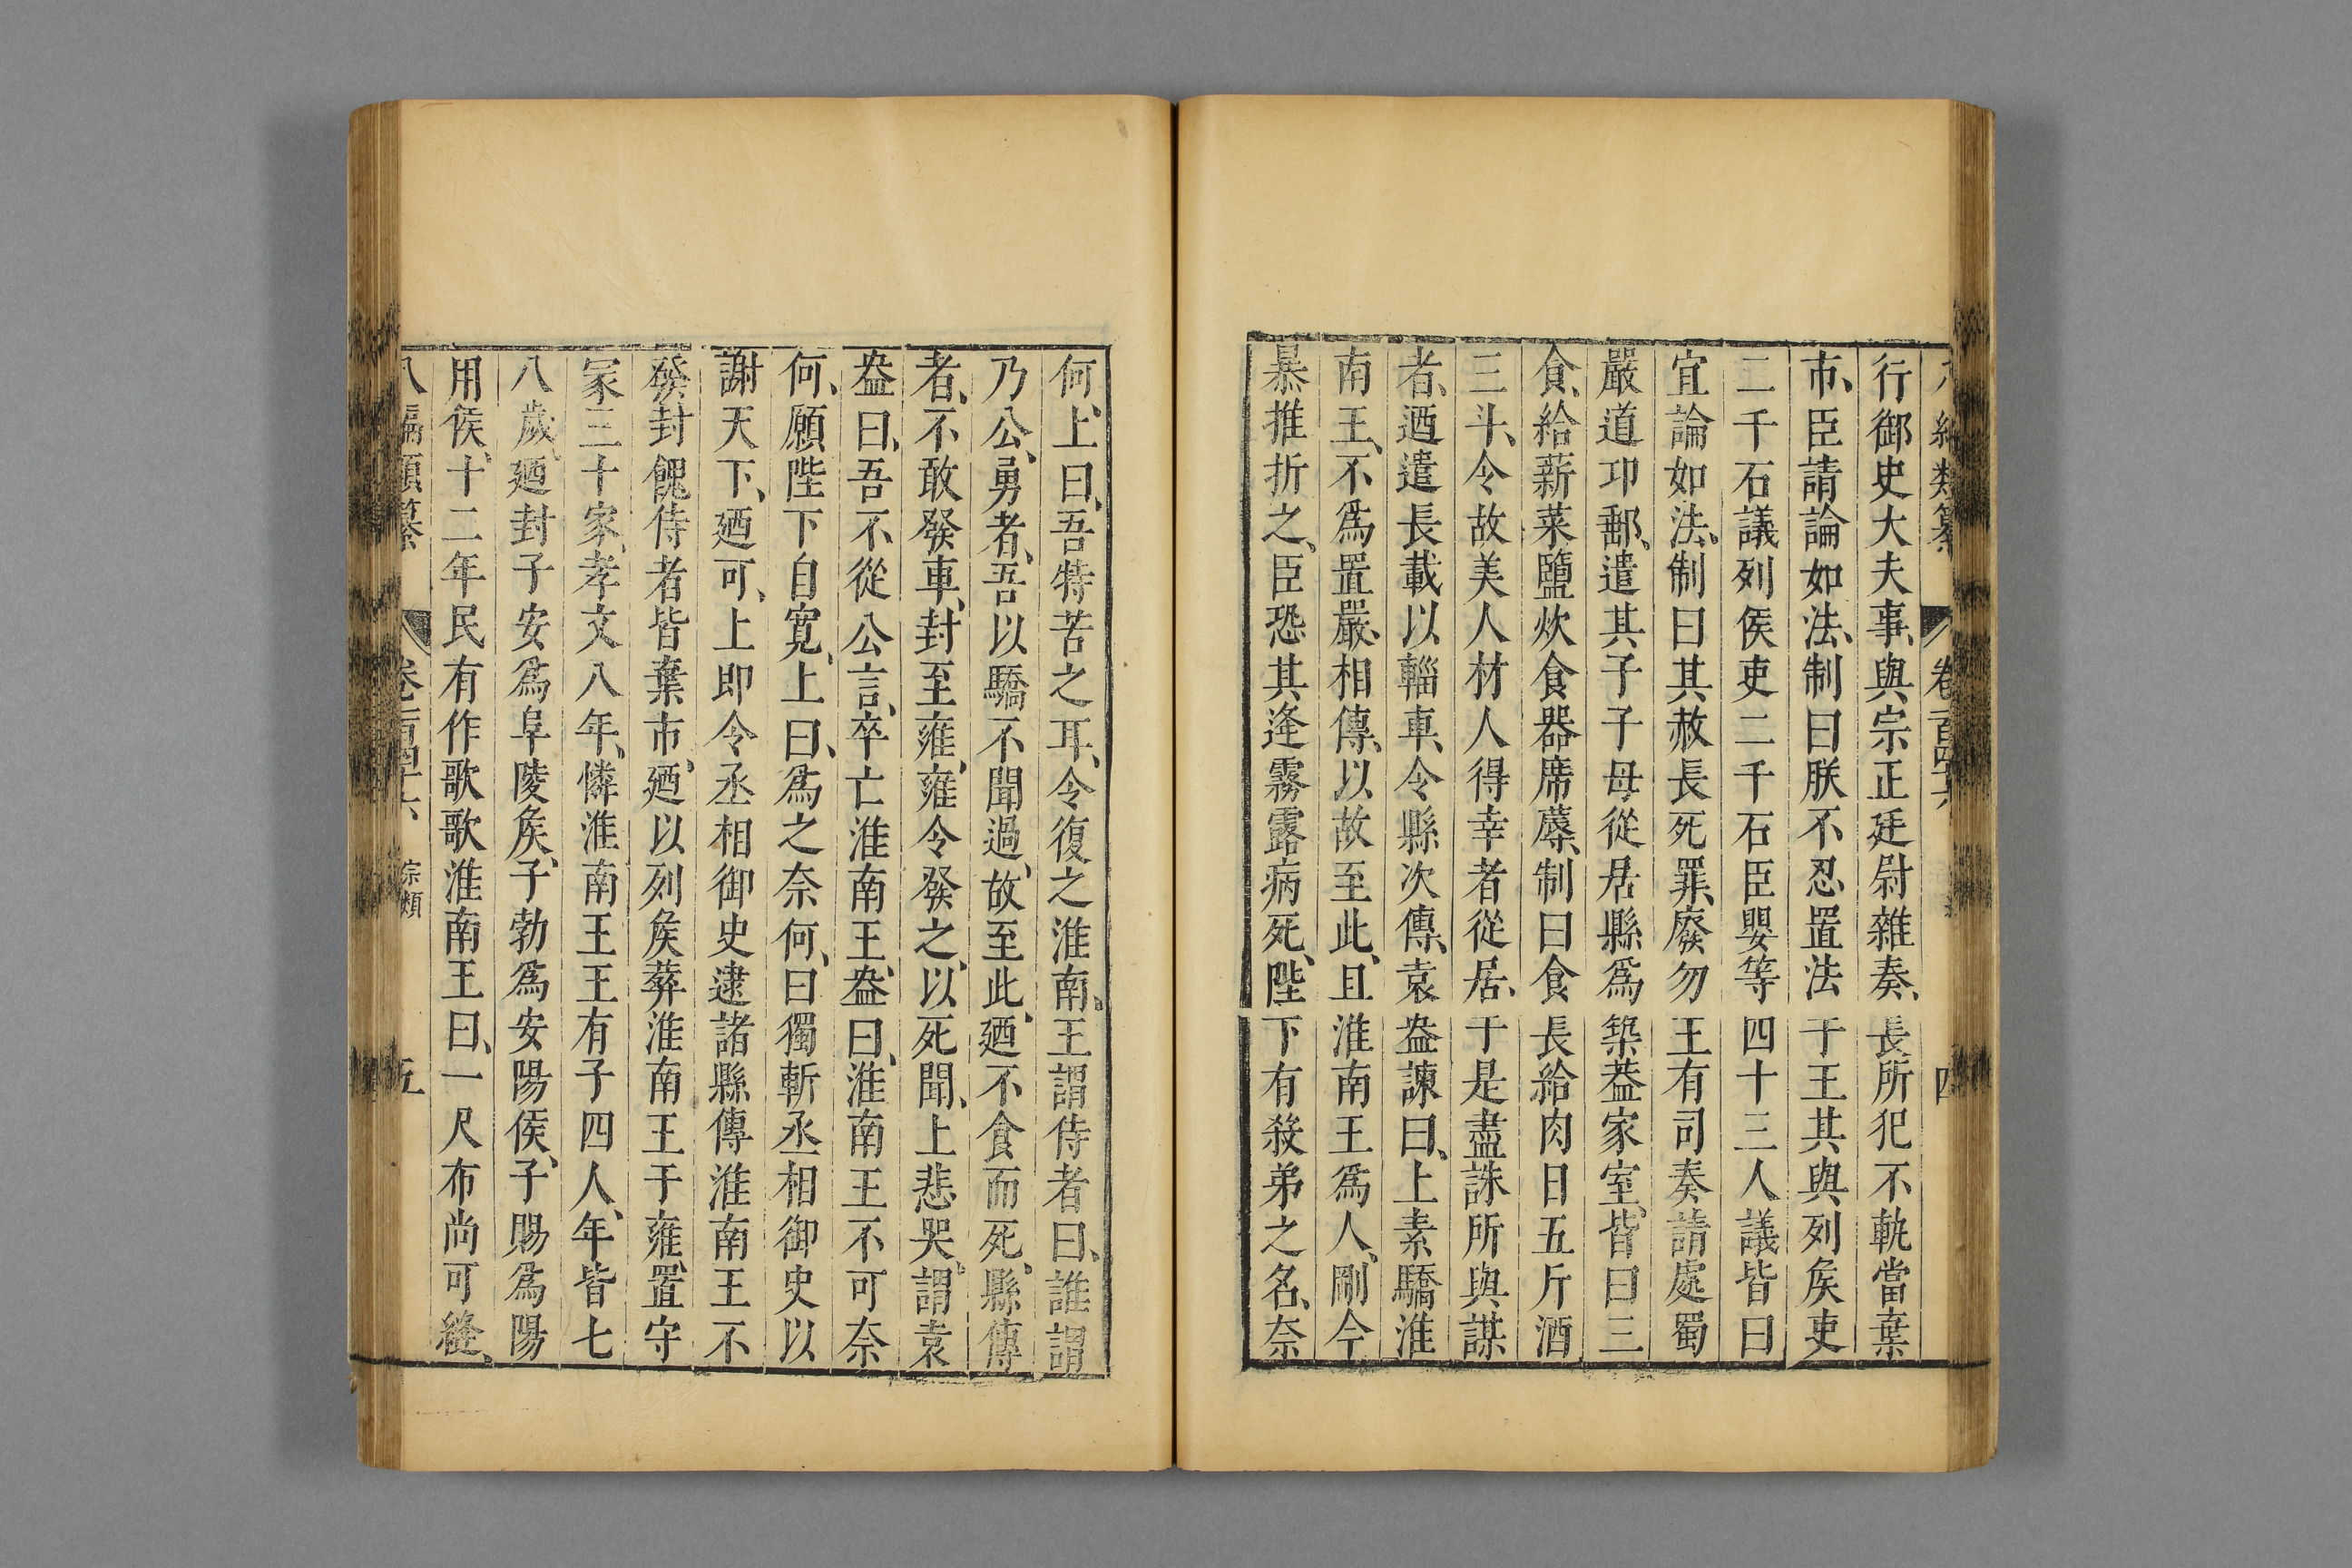 八編類纂 卷一百四十六 四
行御史大夫事、與宗正廷尉雜奏、長所犯不軌當棄
市、臣請論如法、制曰朕不忍置法于王其與列矦吏
二千石議列侯吏二千石臣嬰等四十三人議皆曰
宜論如法、制曰其赦長死罪、廢勿王有司奏請處蜀
嚴道卭郵、遣其子子母從居縣爲築葢家室、皆曰三
食、給薪菜鹽炊食器席蓐、制曰食長給肉日五斤酒
三斗、令故美人材人得幸者從居、于是盡誅所與謀
者、迺遣長載以輜車、令縣次傳、袁盎諫曰、上素驕淮
南王、不爲置嚴、相傳、以故至此、且淮南王爲人、剛今
暴摧折之、臣恐其逢霧露病死、陛下有殺弟之名、奈
何、上曰、吾特苦之耳、令復之淮南、王謂侍者曰、誰謂
乃公、勇者、吾以驕不聞過、故至此、迺不食而死、縣傳
者、不敢發車、封至雍、雍令發之、以死聞、上悲哭、謂袁
盎曰、吾不從公言、卒亡淮南王、盎曰、淮南王不可奈
何、願陛下自寬、上曰、爲之奈何、曰獨斬丞相御史以
謝天下、迺可、上即令丞相御史逮諸縣傳淮南王不
發封餽侍者皆棄市、迺以列矦葬淮南王于雍、置守
冢三十家、孝文八年、憐淮南王王有子四人、年皆七
八歲、迺封子安爲阜陵矦、子勃爲安陽侯、子賜爲陽
用侯、十二年民有作歌歌淮南王曰、一尺布尚可縫、
八編類纂 卷一百四十六 宗類 五